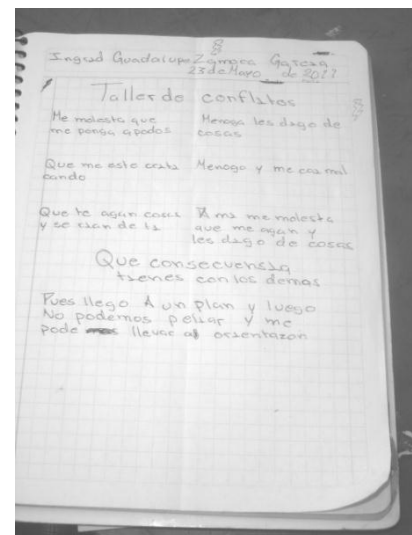 Ingrid Guadalupe Zamora Garcia
23 de Mayo de 2017
Taller de conflitos
Me molesta que
me ponga apodos
Menogo les dago de
cosas
Que me este
bando
Menogo y me cai mal
Que te agan cosas
y se rian de ti
A mi me molesta
que me agan y
les digo de cosas
Que consecuensia
tienes con los demas
Pues llego A un plan y luego
No podemos peliar y me
pode llevar al orientazon